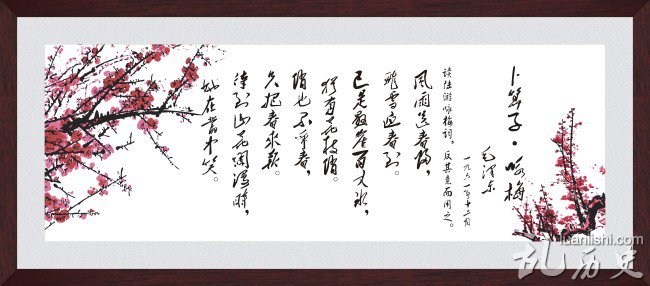 卜算子·咏梅
毛泽东
一九六一年十二月
读陆游咏梅词，反其意而用之。
风雨送春归，
飞雪迎春到。
已是悬崖百丈冰，
犹有花枝俏。
俏也不争春，
只把春来报。
待到山花烂漫时，
她在丛中笑。
luanlishi.com
乱历史